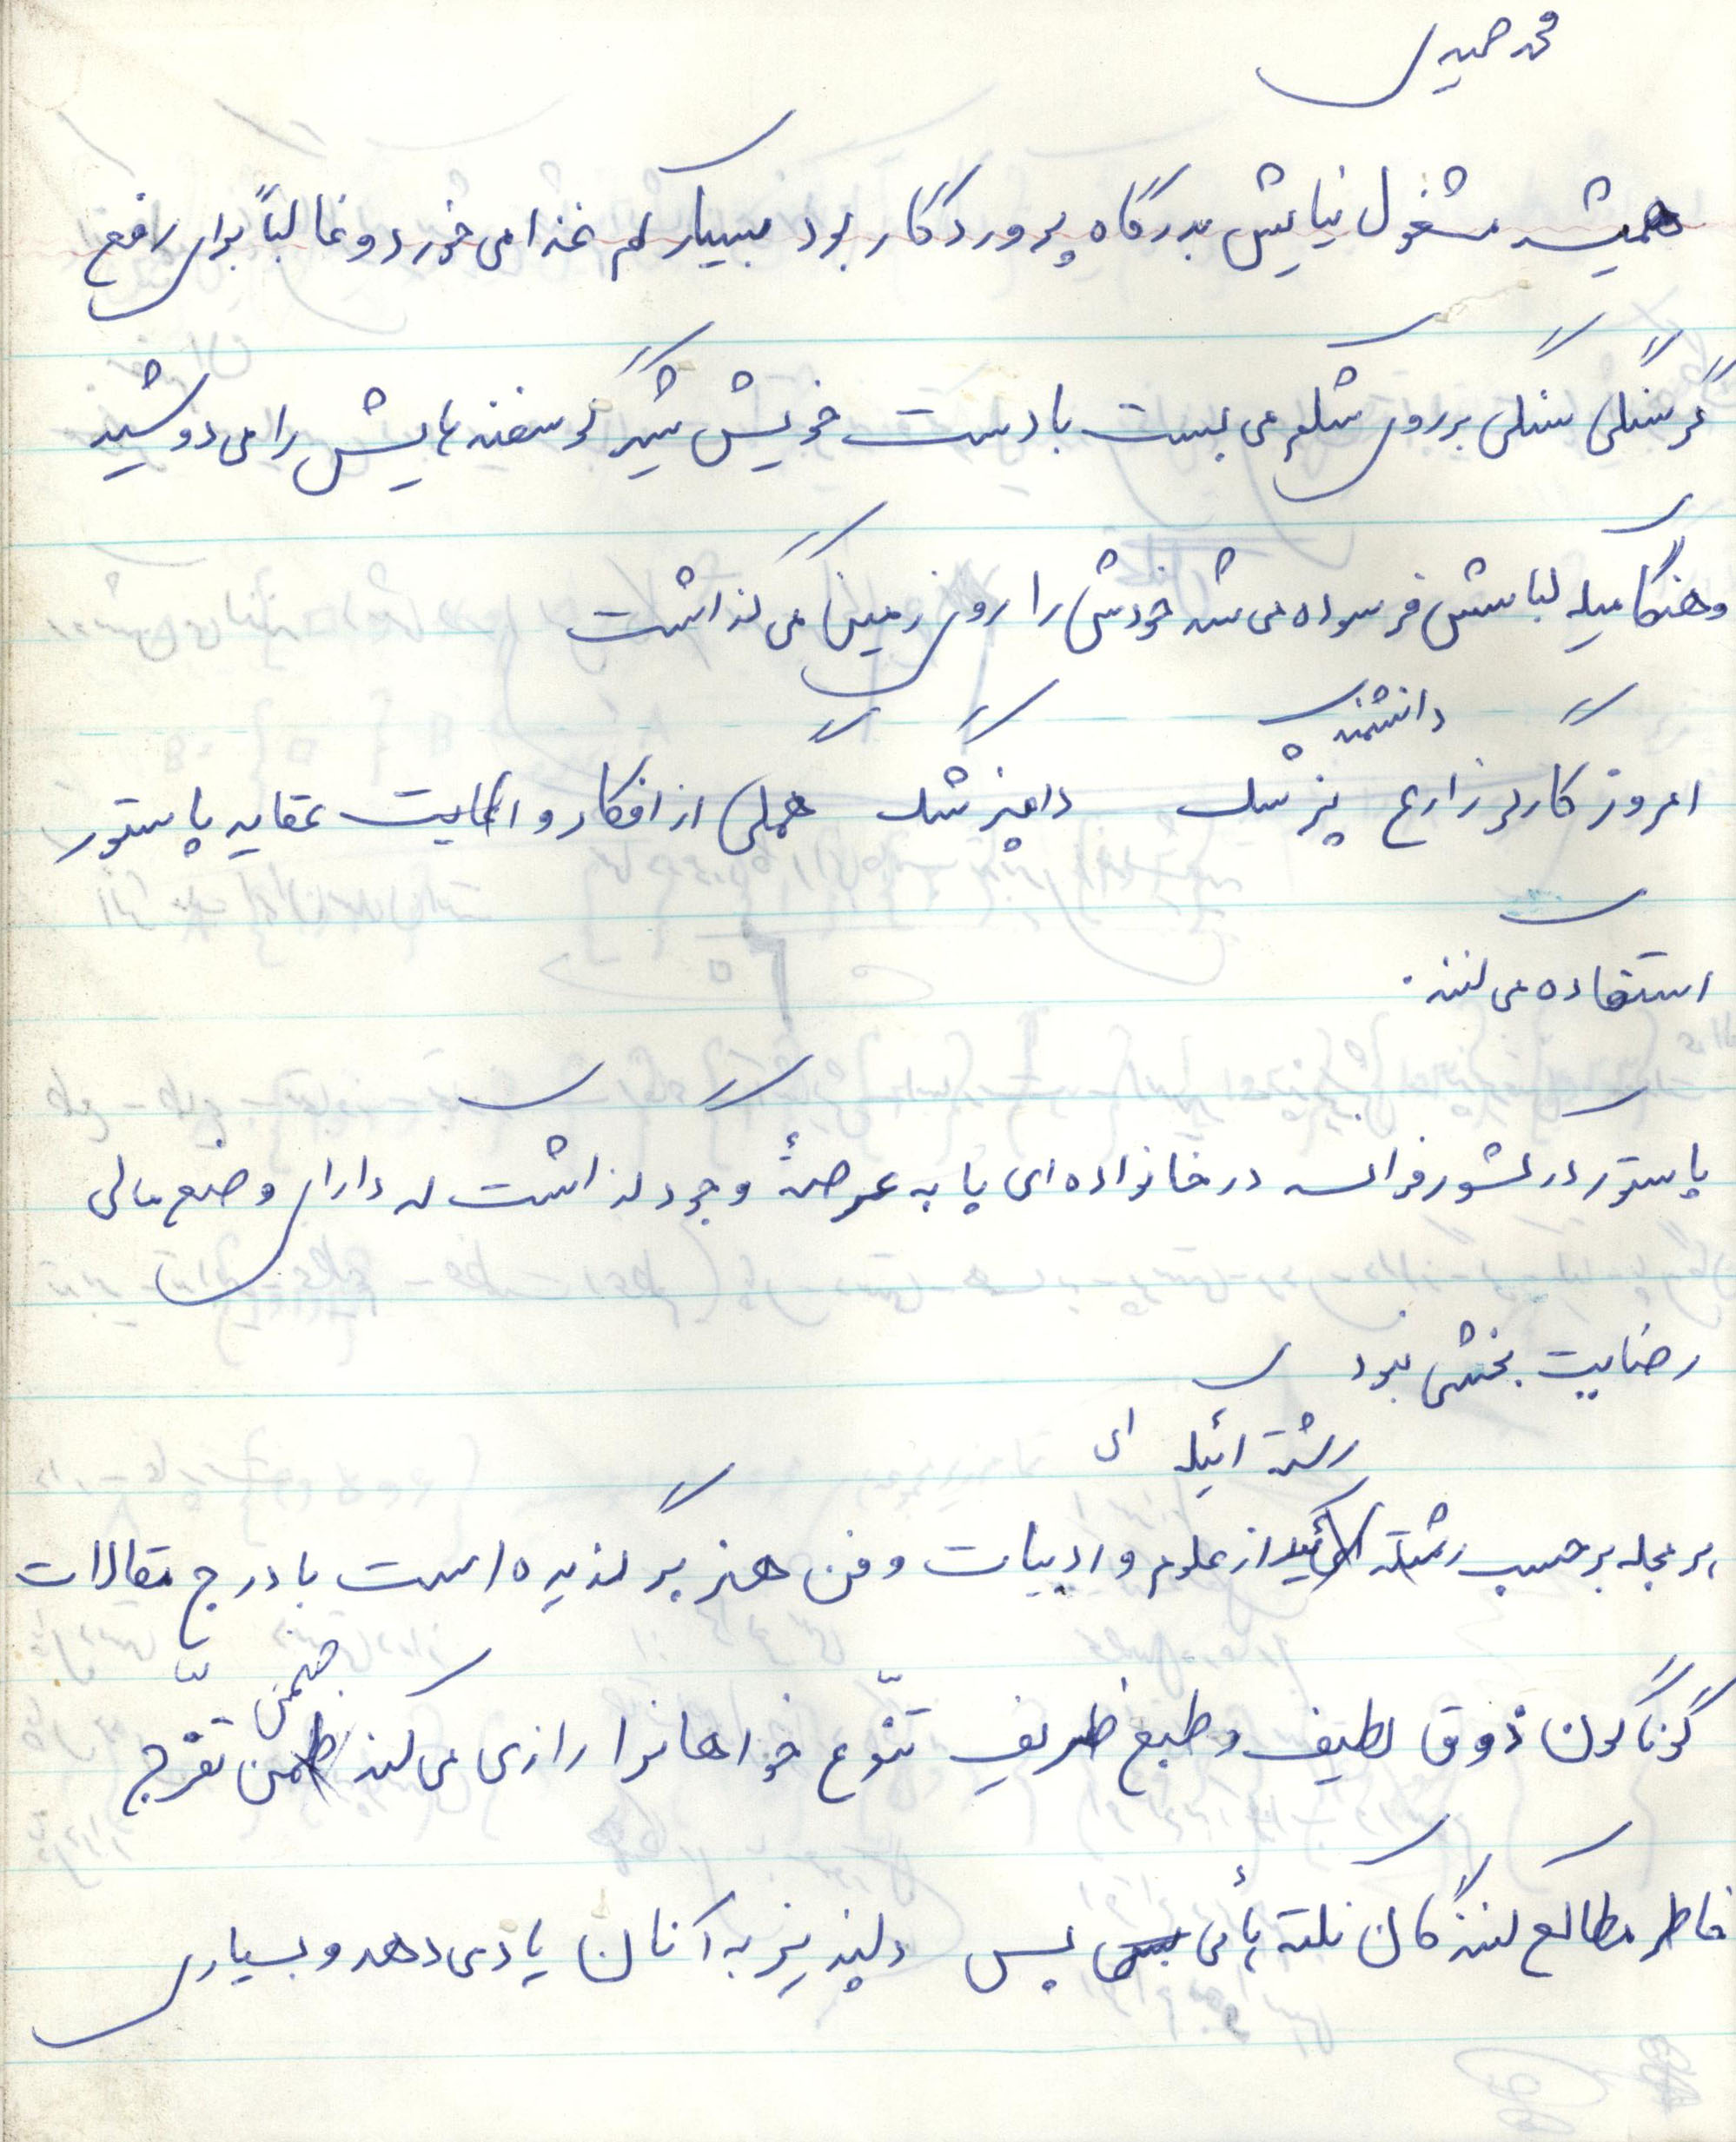 محمد حمیدی
همیشه مشغول نیایش بدرگاه پروردگار بود بسیار کم غذا می خورد و غالباً برای رافع
گرسنگی سنگی برروی شکم می بست با دست خویش شیر گوسفند هایش را می دوشید
و هنگامیکه لباسش فرسوده می شد خودش را روی زمین می گذاشت
دانشمند
امروز کارگر زارع پزشک دامپزشک همگی از افکار و عقاید پاستور
استفاده می کنند.
پاستور در کشور فرانسه در خانواده ای پا به عرصهٔ وجود گذاشت که دارای وضع مالی
رضایت بخشی نبود
رشته ائیکه ای
هر مجله بر حسب رشته از علوم و ادبیات و فن هنر برگزیده است با درج مقالات
ضمن
گوناگون ذوق لطیف و طبع ظریف تنّوع خواهانرا رازی می کند ظمن تفرّج
خاطر مطالع کنندگان نکته هأی بس دلپذیز به آنان یا دی دهد و بسیاری